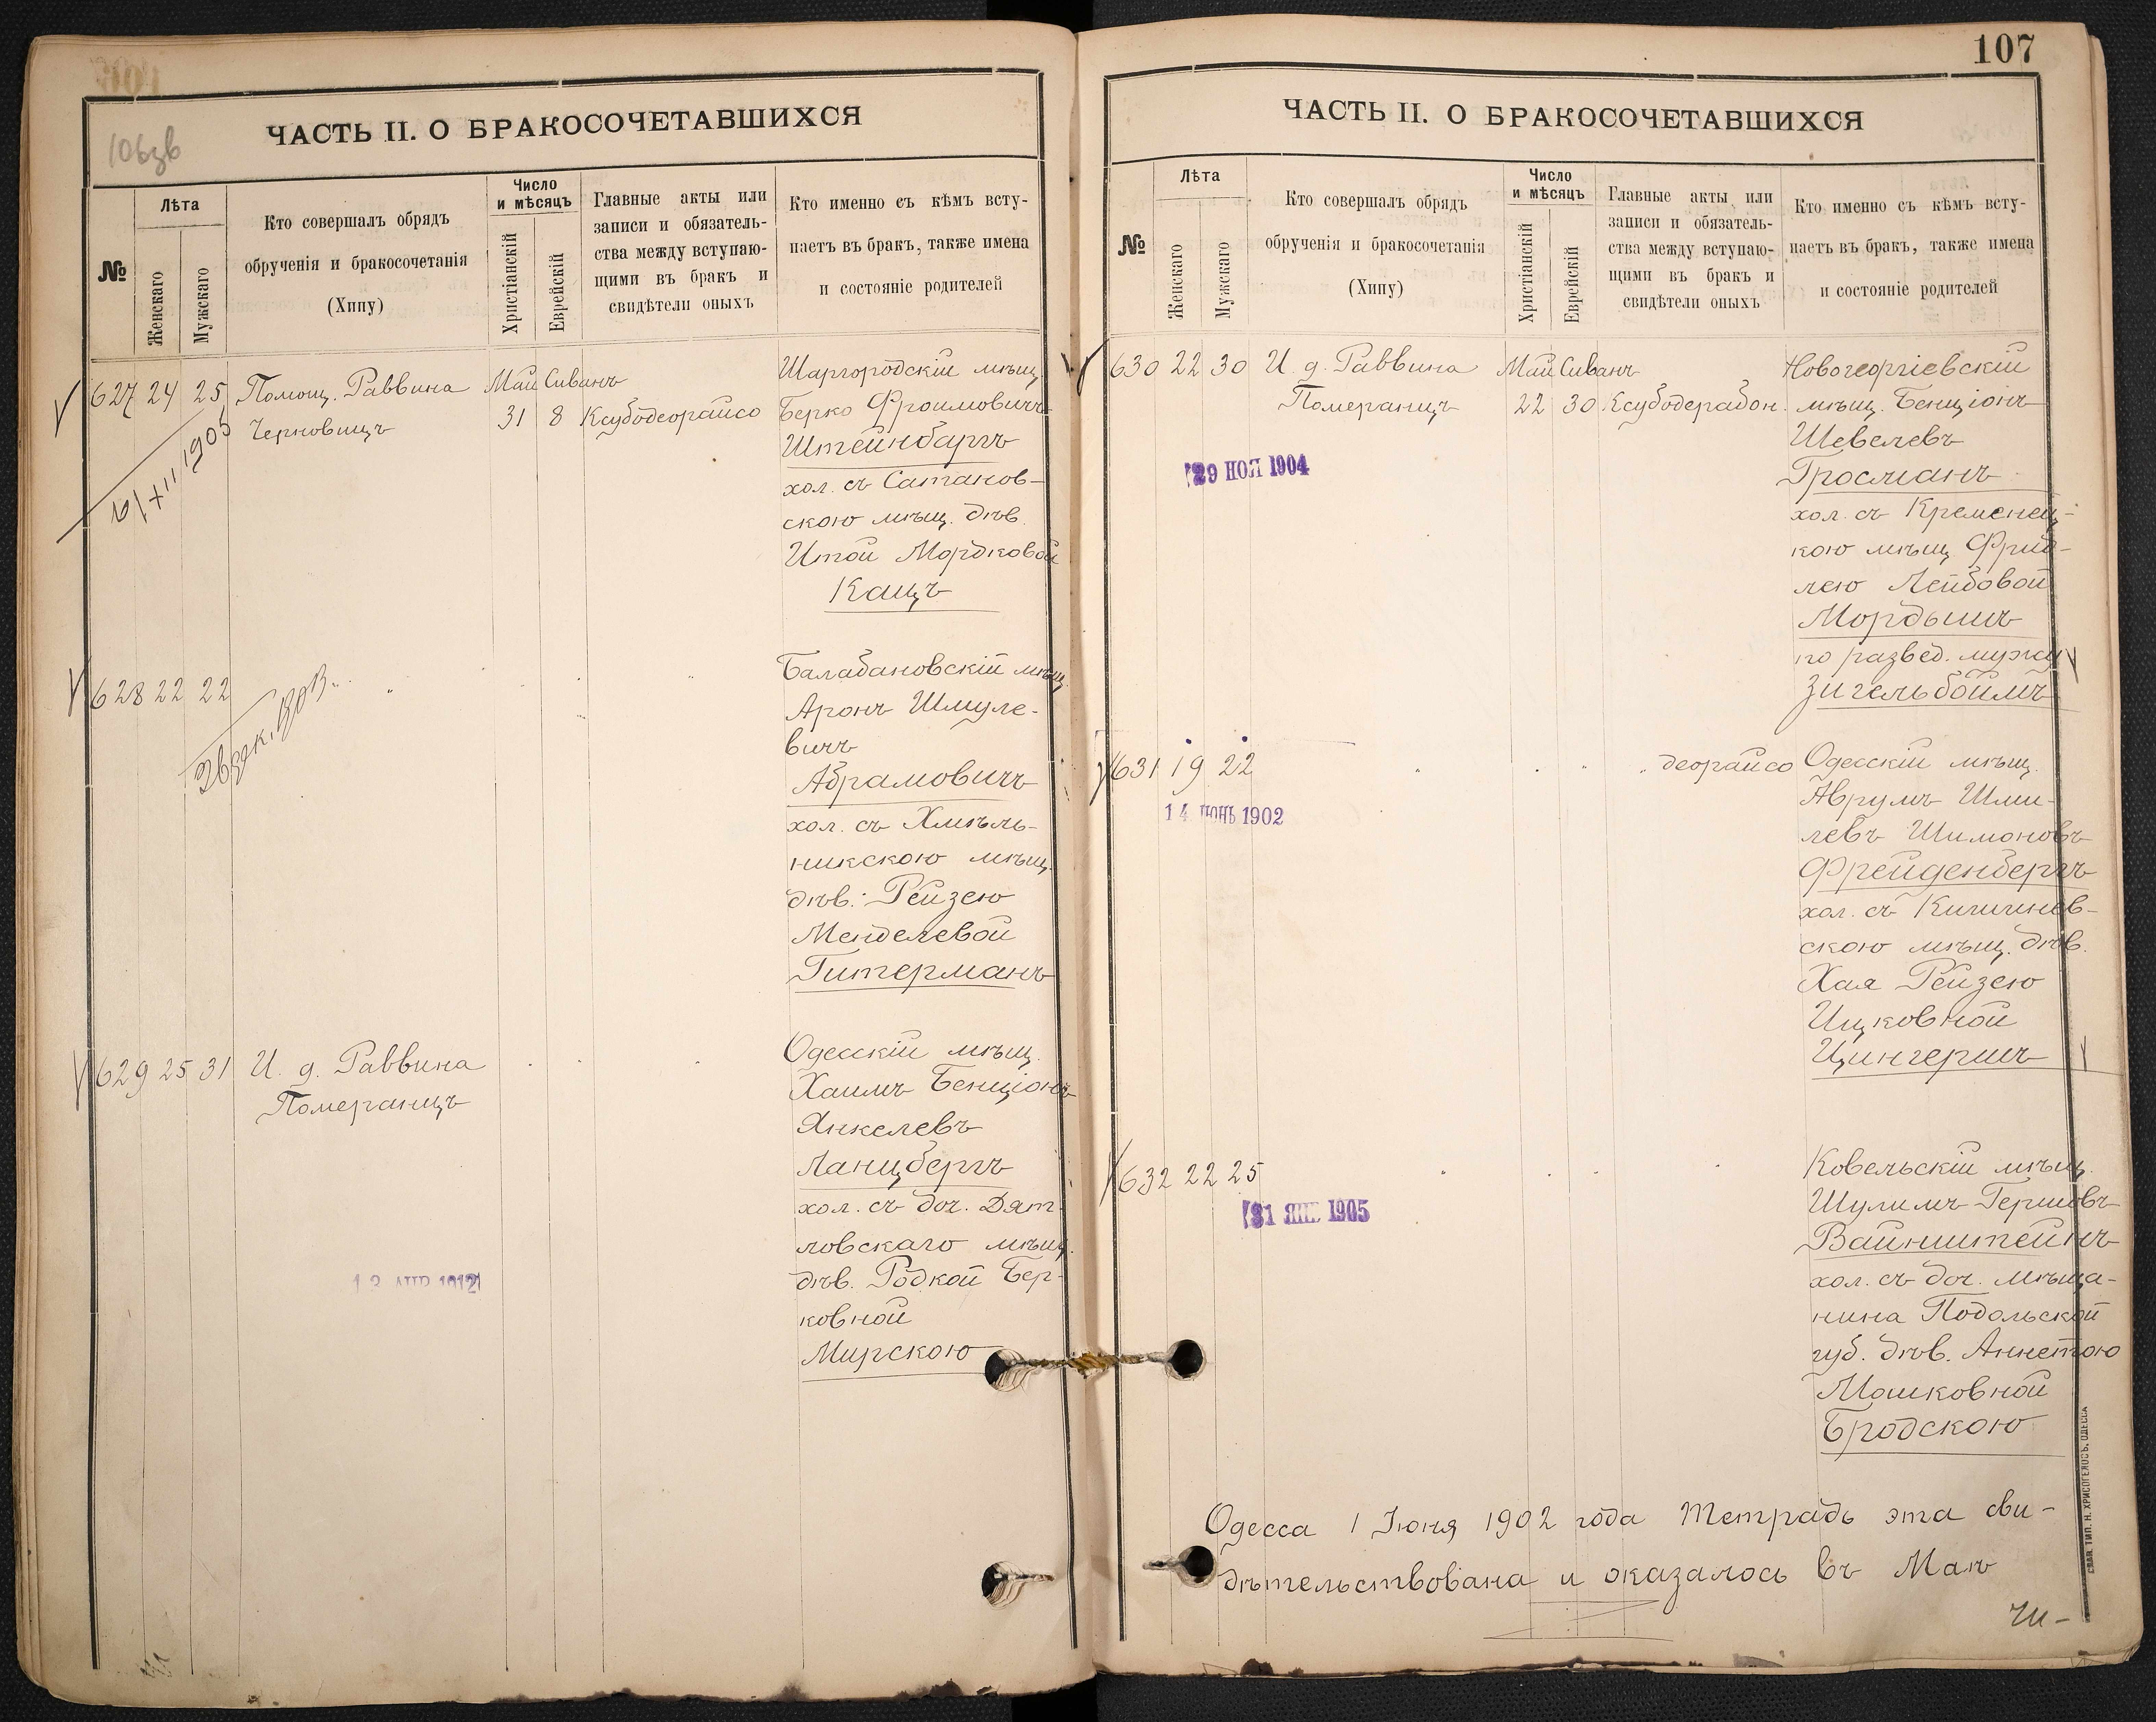 106зв
ЧАСТЬ II. О БРАКОСОЧЕТАВШИХСЯ
№
Лѣта
Женскаго
Мужскаго
Кто совершалъ обрядъ
обрученія и бракосочетанія
(Хипу)
Число
и мѣсяцъ
Христіанскій
Еврейскій
Главные акты или
записи и обязатель-
ства между вступаю-
щими въ бракъ и
свидѣтели оныхъ
Кто именно съ кѣмъ всту-
паетъ въ бракъ, также имена
и состояніе родителей
627 24 25 Помощ. Раввина Май Сиванъ
Черновицъ 31 8 Ксубодеорайсо
1905
Шаргородскій мѣщ.
Берко Фроимовичъ
Штейнбаргъ
хол. съ Сатанов-
скою мѣщ. дѣв.
Итой Мордковой
Кацъ
628 22 22
Балабановскій мѣщ.
Аронъ Шмуле-
вичъ
Абрамовичъ
хол. съ Хмѣль-
никскою мѣщ.
дѣв. Рейзею
Менделевой
Гитерманъ
629 25 31 И. д. Раввина
Померанцъ
Одесскій мѣщ.
Хаимъ Бенціонъ
Янкелевъ
Ланцбергъ
хол. съ доч. Дят-
ловскаго мѣщ.
дѣв. Родкой Бер-
ковной
Мирскою
107
ЧАСТЬ II. О БРАКОСОЧЕТАВШИХСЯ
№
Лѣта
Женскаго
Мужскаго
Кто совершалъ обрядъ
обрученія и бракосочетанія
(Хипу)
Число
и мѣсяцъ
Христіанскій
Еврейскій
Главные акты или
записи и обязатель-
ства между вступаю-
щими въ бракъ и
свидѣтели оныхъ
Кто именно съ кѣмъ всту-
паетъ въ бракъ, также имена
и состояніе родителей
630 22 30 И. д. Раввина Май Сиванъ
Померанцъ 22 30 Ксубодерабон.
29 НОЯ 1904
Новогеоргіевскій
мѣщ. Бенціонъ
Шевелевъ
Гросманъ
хол. съ Кременец-
кою мѣщ. Фрид-
лею Лейбовой
Мордышъ
по развед. мужу
Зигельбоймъ
631 19 22 деорайсо
14 ІЮНЬ 1902
Одесскій мѣщ.
Аврумъ Шми-
левъ Шимоновъ
Фрейденбергъ
хол. съ Кишинев-
скою мѣщ. дѣв.
Хая Рейзею
Ицковной
Цингеришъ
632 22 25
31 ЯНВ 1905
Ковельскій мѣщ.
Шулимъ Гершовъ
Вайнштейнъ
хол. съ доч. мѣща-
нина Подольской
губ. дѣв. Аннетою
Мошковной
Бродскою
Одесса 1 Іюня 1902 года Тетрадь эта сви-
дѣтельствована и оказалось въ Маѣ
чи-
СЛАВ. ТИП. Н. ХРИСОГЕЛОСЪ, ОДЕССА